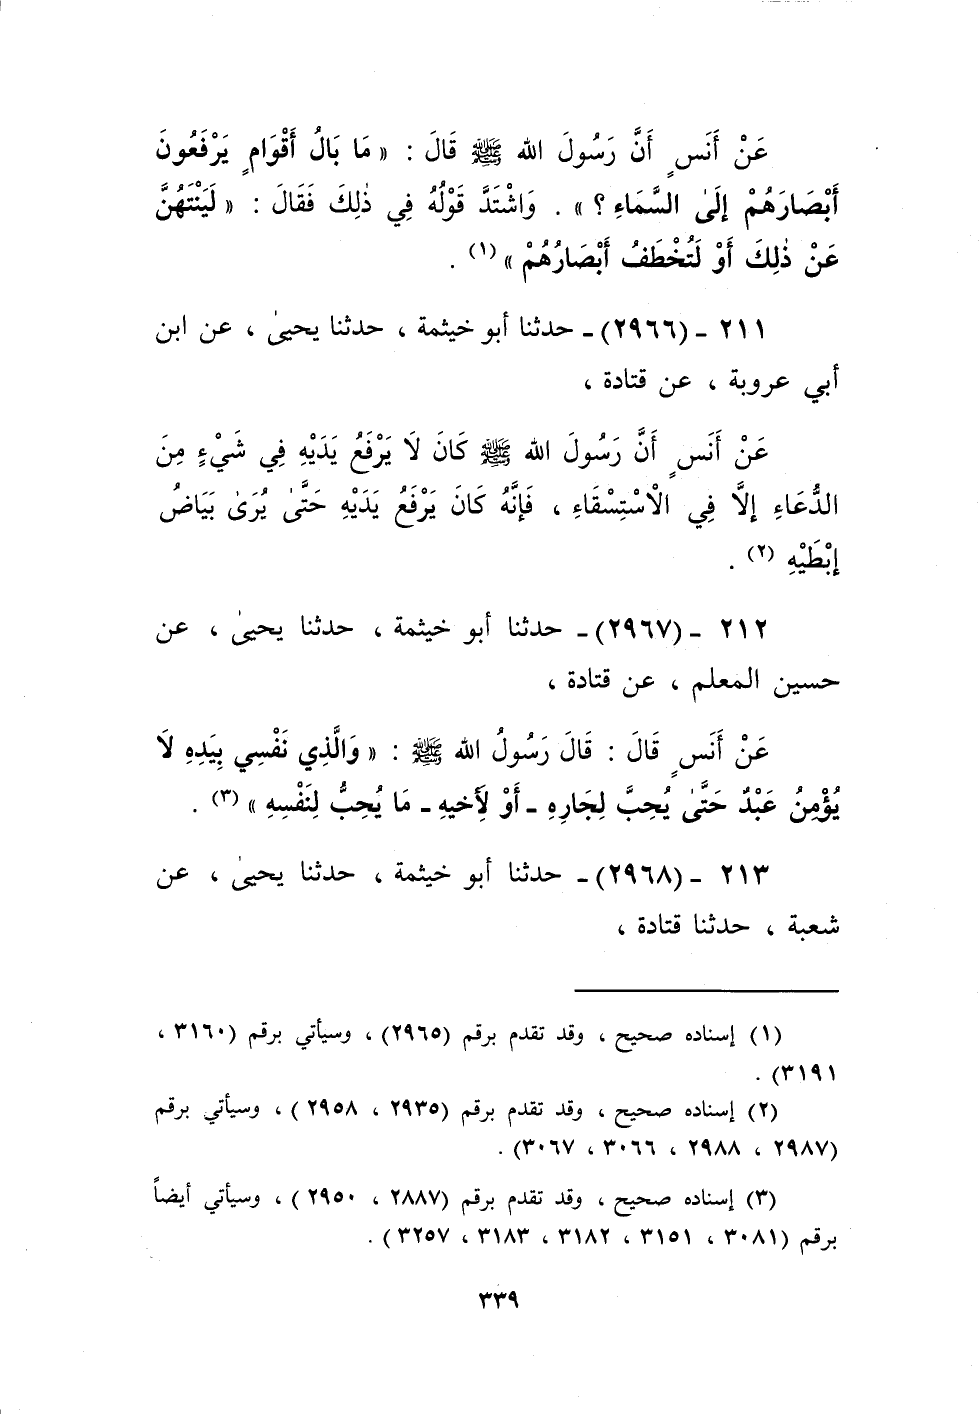 عَنْ أَنَسٍ أَنَّ رَسُولَ الله ﷺ قَالَ : « مَا بَالُ أَقْوَامٍ يَرْفَعُونَ
أَبْصَارَهُمْ إِلَىٰ السَّمَاءِ ؟ » . وَاشْتَدَّ قَوْلُهُ فِي ذٰلِكَ فَقَالَ : « لَيَنْتَهُنَّ
عَنْ ذٰلِكَ أَوْ لَتُخْطَفُ أَبْصَارُهُمْ » (١) .
٢١١ - (٢٩٦٦)- حدثنا أبو خيثمة ، حدثنا يحيىٰ ، عن ابن
أبي عروبة ، عن قتادة ،
عَنْ أَنَسٍ أَنَّ رَسُولَ الله ﷺ كَانَ لَا يَرْفَعُ يَدَيْهِ فِي شَيْءٍ مِنَ
الدُّعَاءِ إِلَّا فِي الْاسْتِسْقَاءِ ، فَإِنَّهُ كَانَ يَرْفَعُ يَدَيْهِ حَتَّىٰ يُرَىٰ بَيَاضُ
إِبْطَيْهِ (٢) .
٢١٢ - (٢٩٦٧)- حدثنا أبو خيثمة ، حدثنا يحيىٰ ، عن
حسين المعلم ، عن قتادة ،
عَنْ أَنَسٍ قَالَ : قَالَ رَسُولُ الله ﷺ : « وَالَّذِي نَفْسِي بِيَدِهِ لَا
يُؤْمِنُ عَبْدٌ حَتَّىٰ يُحِبَّ لِجَارِهِ - أَوْ لَأَخيهِ - مَا يُحِبُّ لِنَفْسِهِ » (٣) .
٢١٣ - (٢٩٦٨)- حدثنا أبو خيثمة ، حدثنا يحيىٰ ، عن
شعبة ، حدثنا قتادة ،
(١) إسناده صحيح ، وقد تقدم برقم (٢٩٦٥) ، وسيأتي برقم (٣١٦٠ ،
٣١٩١) .
(٢) إسناده صحيح ، وقد تقدم برقم (٢٩٣٥ ، ٢٩٥٨ ) ، وسيأتي برقم
(٢٩٨٧ ، ٢٩٨٨ ، ٣٠٦٦ ، ٣٠٦٧) .
(٣) إسناده صحيح ، وقد تقدم برقم (٢٨٨٧ ، ٢٩٥٠ ) ، وسيأتي أيضاً
برقم (٣٠٨١ ، ٣١٥١ ، ٣١٨٢ ، ٣١٨٣ ، ٣٢٥٧ ) .
٣٣٩